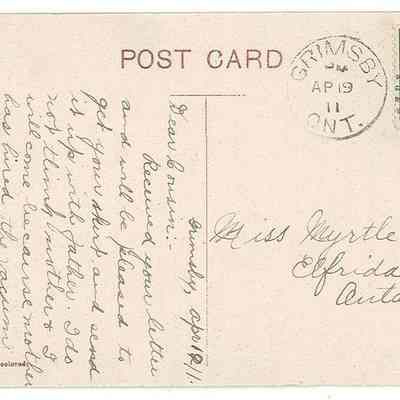 POST CARD
GRIMSBY
PM
AP 19
11
ONT.
Grimsby, Apr 19/11.
Dear Cousin:-
Received your letter
and will be pleased to
get your skirt and send
it up with father. I do
not think mother & I
will come because mother
has hired the vacuum
Miss Myrtle
Elfrida
Onta